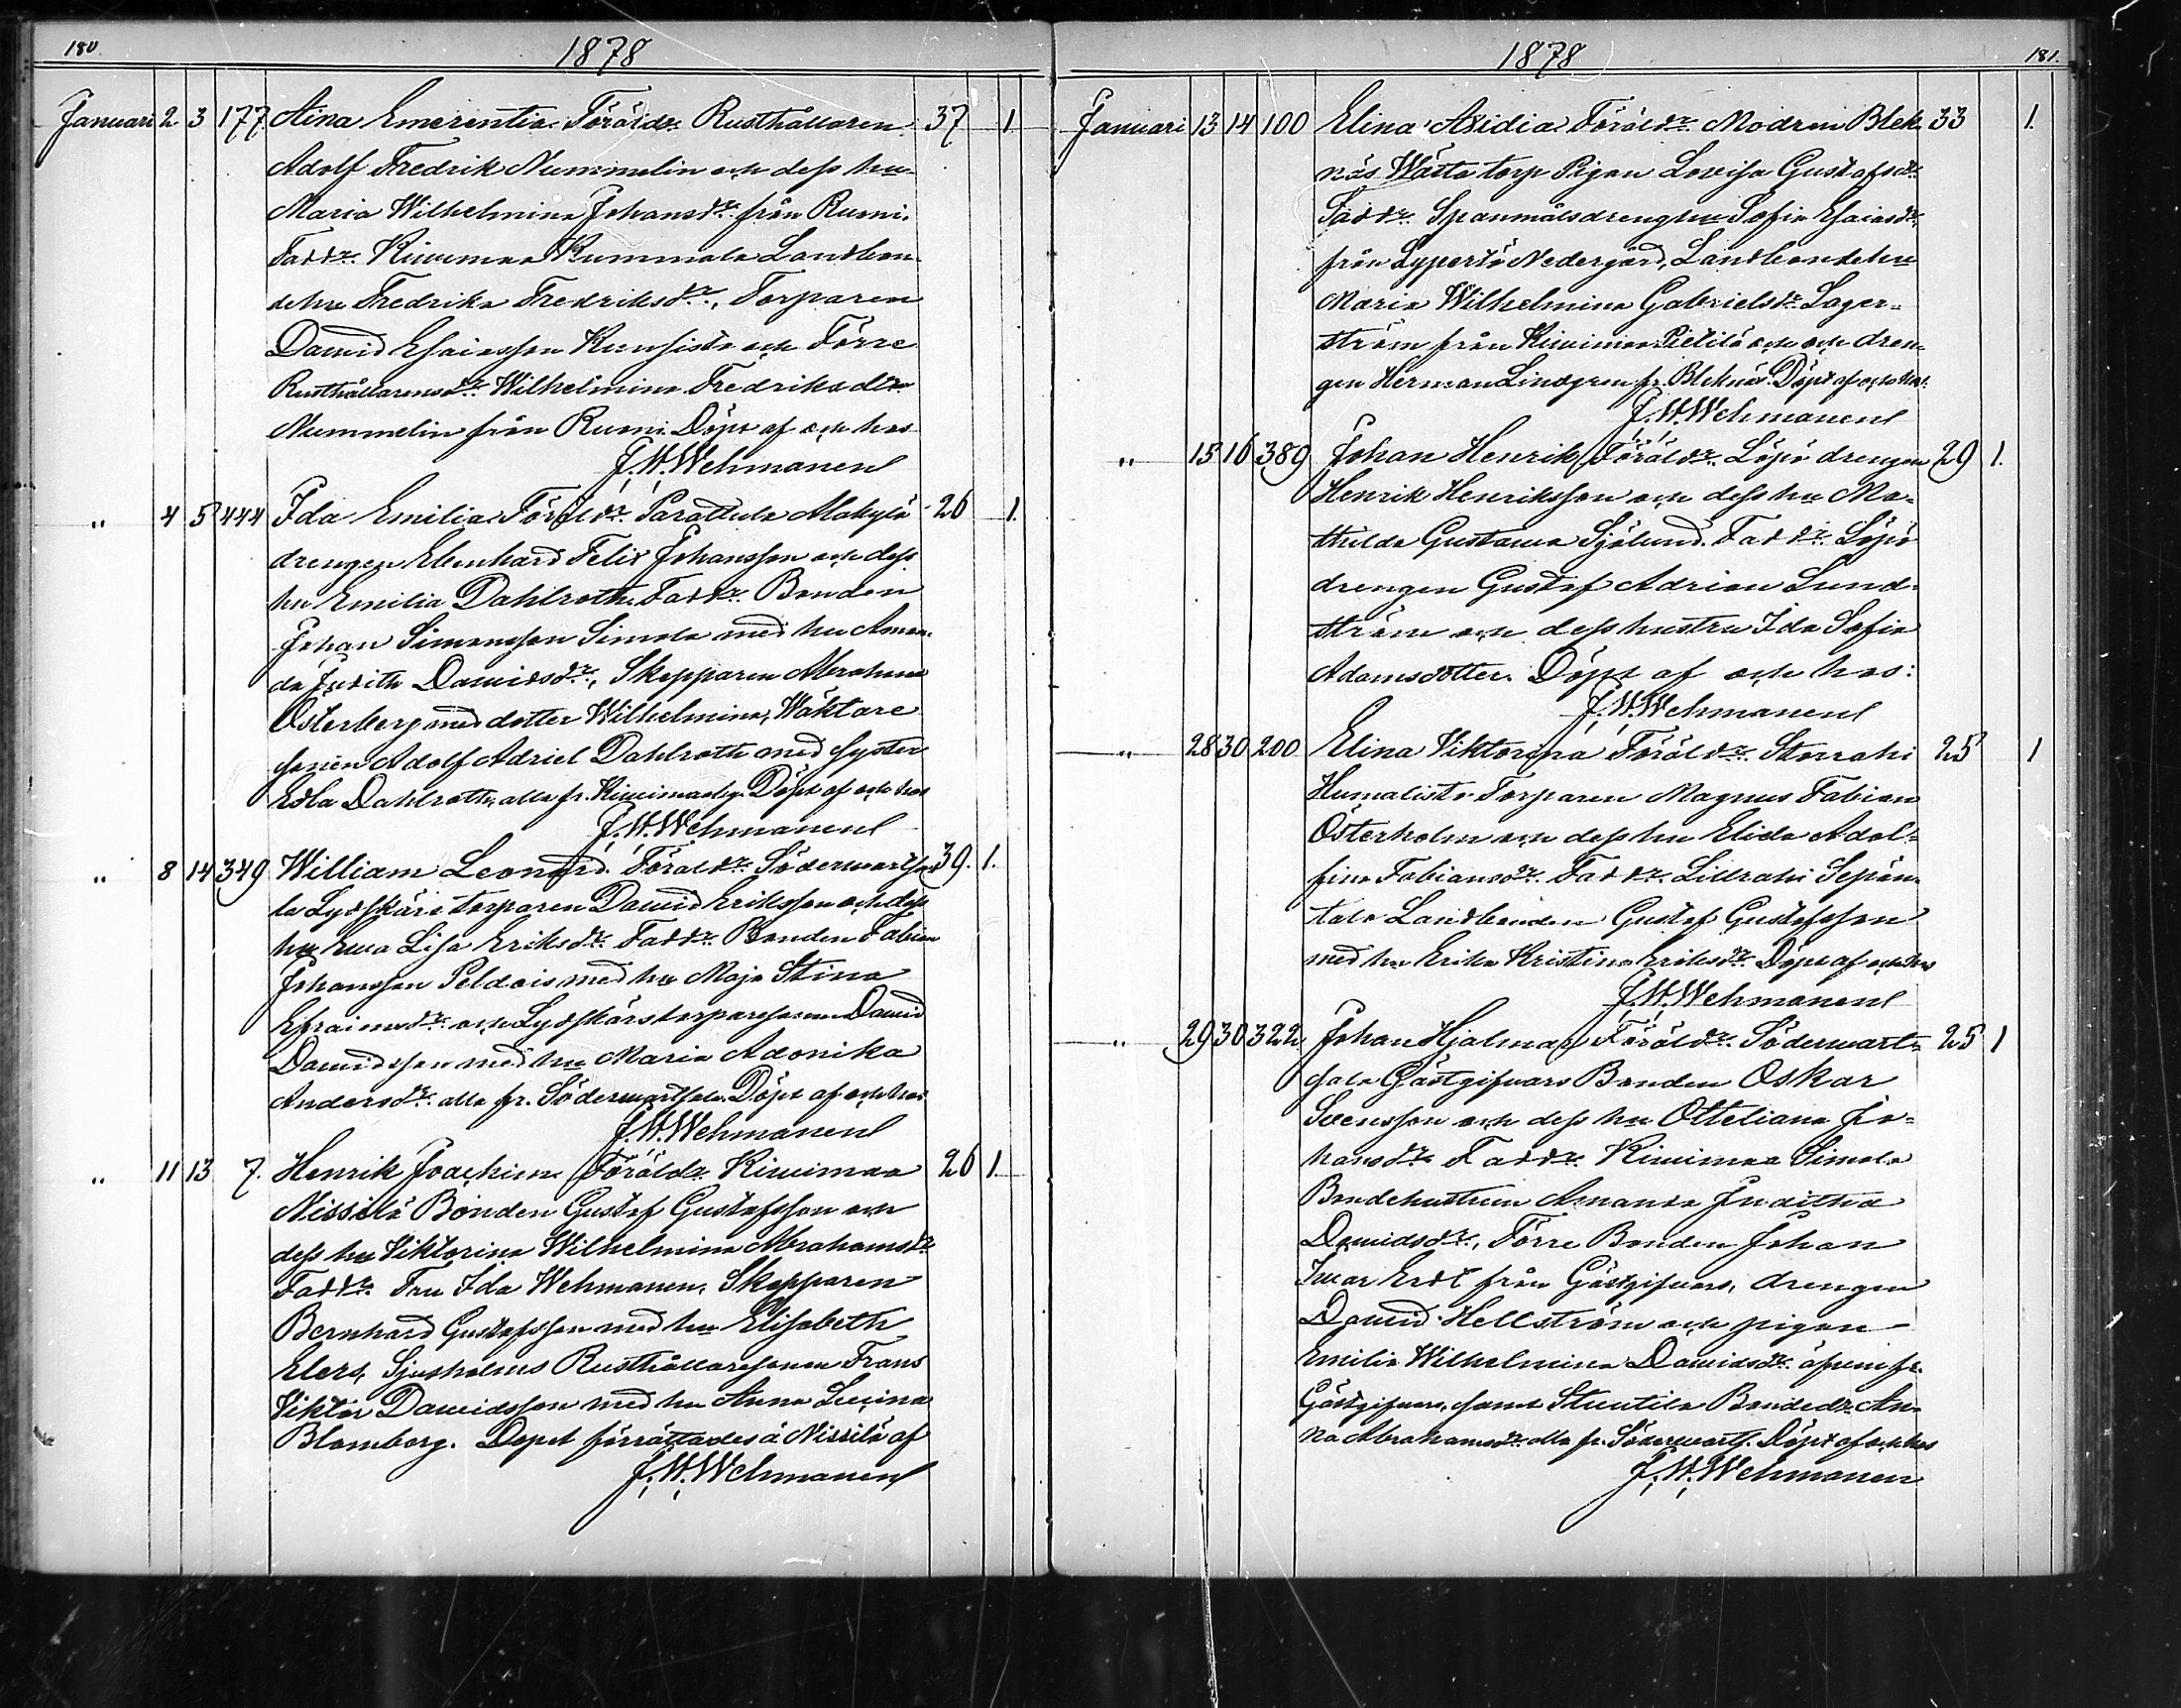 180.
1878
Januari 2 3 177. Aina Emerentia. Föräldr. Rusthållaren 37 1
Adolf Fredrik Nummelin och dess hu
Maria Wilhelmina Johansdr. från Rumi.
Faddr. Kiwimaa Kummala Landbon-
dehu Fredrika Fredriksdr., Torparen
Dawid Esaiasson Kunsisto och Förre
Rusthållarensdr. Wilhelmina Fredriksdr.
Nummelin från Rumi. Döpt af och hos
J. W. Wehmanen
" 4 5 444 Ida Emilia. Föräldr. Parattula Alakylä 26 1.
drengen Ebenhard Felix Johansson och dess
hu Emilia Dahlroth. Faddr. Bonden
Johan Simonsson Simola med hu Aman-
da Judith Dawidsdr., Skepparen Abraham
Österberg med dotter Wilhelmina, Wäktare
sonen Adolf Adriel Dahlroth med syster
Edla Dahlroth, alla fr. Kiwimaa. Döpt af och hos
J. W. Wehmanen
" 8 14 349 William Leonard. Föräldr. Söderwartsa- 39. 1.
la Lydskärs torparen Dawid Eriksson och dess
hu Ewa Lisa Eriksdr. Faddr. Bonden Fabian
Johansson Peldais med hu Maja Stina
Efraimsdr. och Lydskärs torparesonen Dawid
Dawidsson med hu Maria Adonika
Andersdr. alla fr. Söderwartsala. Döpt af och hos
J. W. Wehmanen
" 11 13 7. Henrik Joachim. Föräldr. Kiwimaa 26 1.
Nissilä Bonden Gustaf Gustafsson och
dess hu Viktorina Wilhelmina Abrahamsdr.
Faddr. Fru Ida Wehmanen, Skepparen
Bernhard Gustafsson med hu Elisabeth
Elers, Sjusholms Rusthållaresonen Frans
Viktor Dawidsson med hu Anna Lucina
Blomberg. Dopet förrättades å Nissilä af
J. W. Wehmanen
1878
181.
Januari 13 14 100 Elina Axidia. Föräldr. Modren Blek- 33 1.
näs Wästa torp Pigan Lovisa Gustafsdr.
Faddr. Spanmålsdrenghu Sofia Esaiasdr.
från Lypertö Nedergård, Landbondehu
Maria Wilhelmina Gabrielsdr. Lager-
ström från Kiwimaa Pietilä och och dren-
gen Herman Lindgren fr. Bleknäs. Döpt af och hos.
J. W. Wehmanen
" 15 16 389 Johan Henrik. Föräldr. Löpö drengen 29 1.
Henrik Henriksson och dess hu Ma-
thilda Gustawa Sjölund. Faddr. Löpö
drengen Gustaf Adrian Lund-
ström och dess hustru Ida Sofia
Adamsdotter. Döpt af och hos:
J. W. Wehmanen
" 28 30 200 Elina Viktorina. Föräldr. Storrahi 25 1
Humalisto Torparen Magnus Fabian
Österholm och dess hu Elida Adol-
fina Fabiansdr. Faddr. Lillrahi Sepän-
talo Landbonden Gustaf Gustafsson
med hu Erika Kristina Eriksdr. Döpt af och hos
J. W. Wehmanen
" 29 30 322 Johan Hjalmar. Föräldr. Söderwart- 25 1
sala Gästgifvars Bonden Oskar
Svensson och dess hu Otteliana Jo-
hansdr. Faddr. Kiwimaa Simola
Bondehustrun Amanda Juditha
Dawidsdr., Förre Bonden Johan
Iwar Erdt från Gästgifvars, drengen
Dawid Hellström och pigan
Emilia Wilhelmina Dawidsdr. äfven fr.
Gästgifvars, samt Stuutila Bondedr. An-
na Abrahamsdr. alla fr. Söderwarts. Döpt af och hos
J. W. Wehmanen